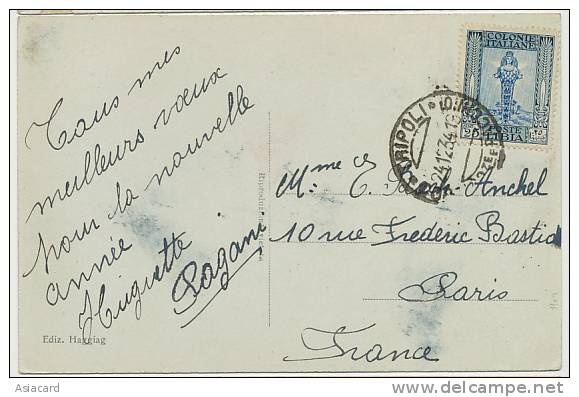 Tous mes
meilleurs vœux
pour la nouvelle
année
Huguette Pagani
Ediz. Haggiag
COLONIE
ITALIANE
25
LIBIA
TRIPOLI
24.12.34
Mme C. Anchel
10 rue Frédéric Bastia
Paris
France
Asiacard
delcampe.net